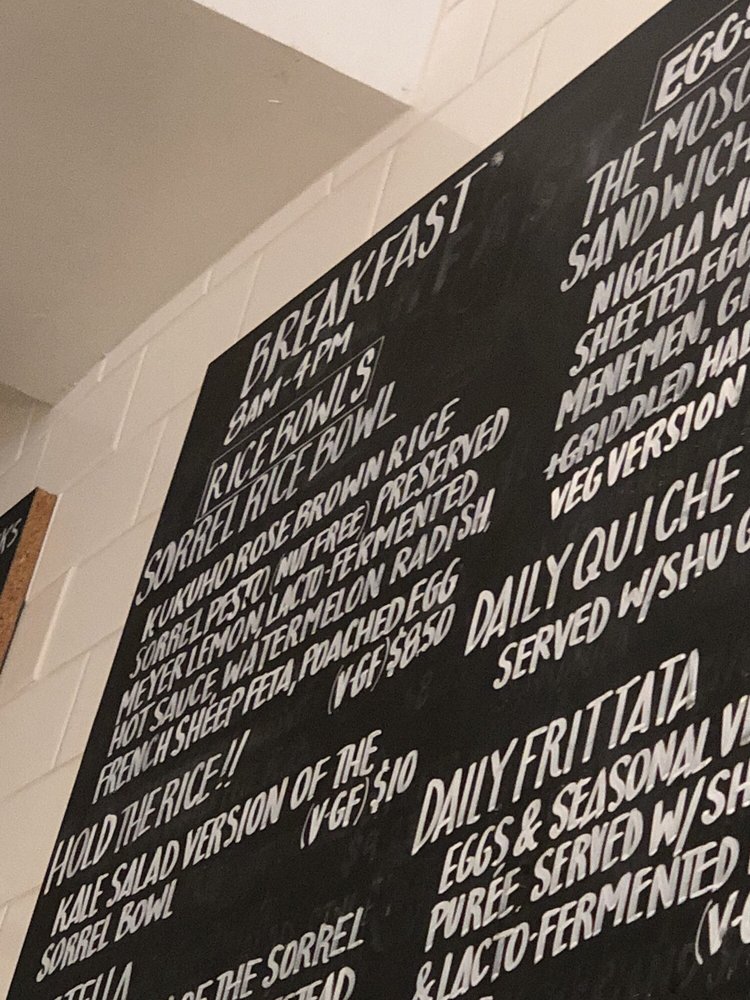 BREAKFAST
8AM-4PM
RICE BOWLS
SORREL RICE BOWL
KUKUHO ROSE BROWN RICE
SORREL PESTO (NUT FREE) PRESERVED
MEYER LEMON, LACTO-FERMENTED
HOT SAUCE, WATERMELON RADISH,
FRENCH SHEEP FETA, POACHED EGG
(V-GF) $8.50
HOLD THE RICE!!
KALE SALAD VERSION OF THE
SORREL BOWL (V-GF) $10
THE SORREL
EGGS
THE
SANDWICH
NIGELLA
SHEETED EGG
MENEMEN,
+GRIDDLED
VEG VERSION
DAILY QUICHE
SERVED W/
DAILY FRITTATA
EGGS & SEASONAL
PURÉE. SERVED W/
& LACTO-FERMENTED